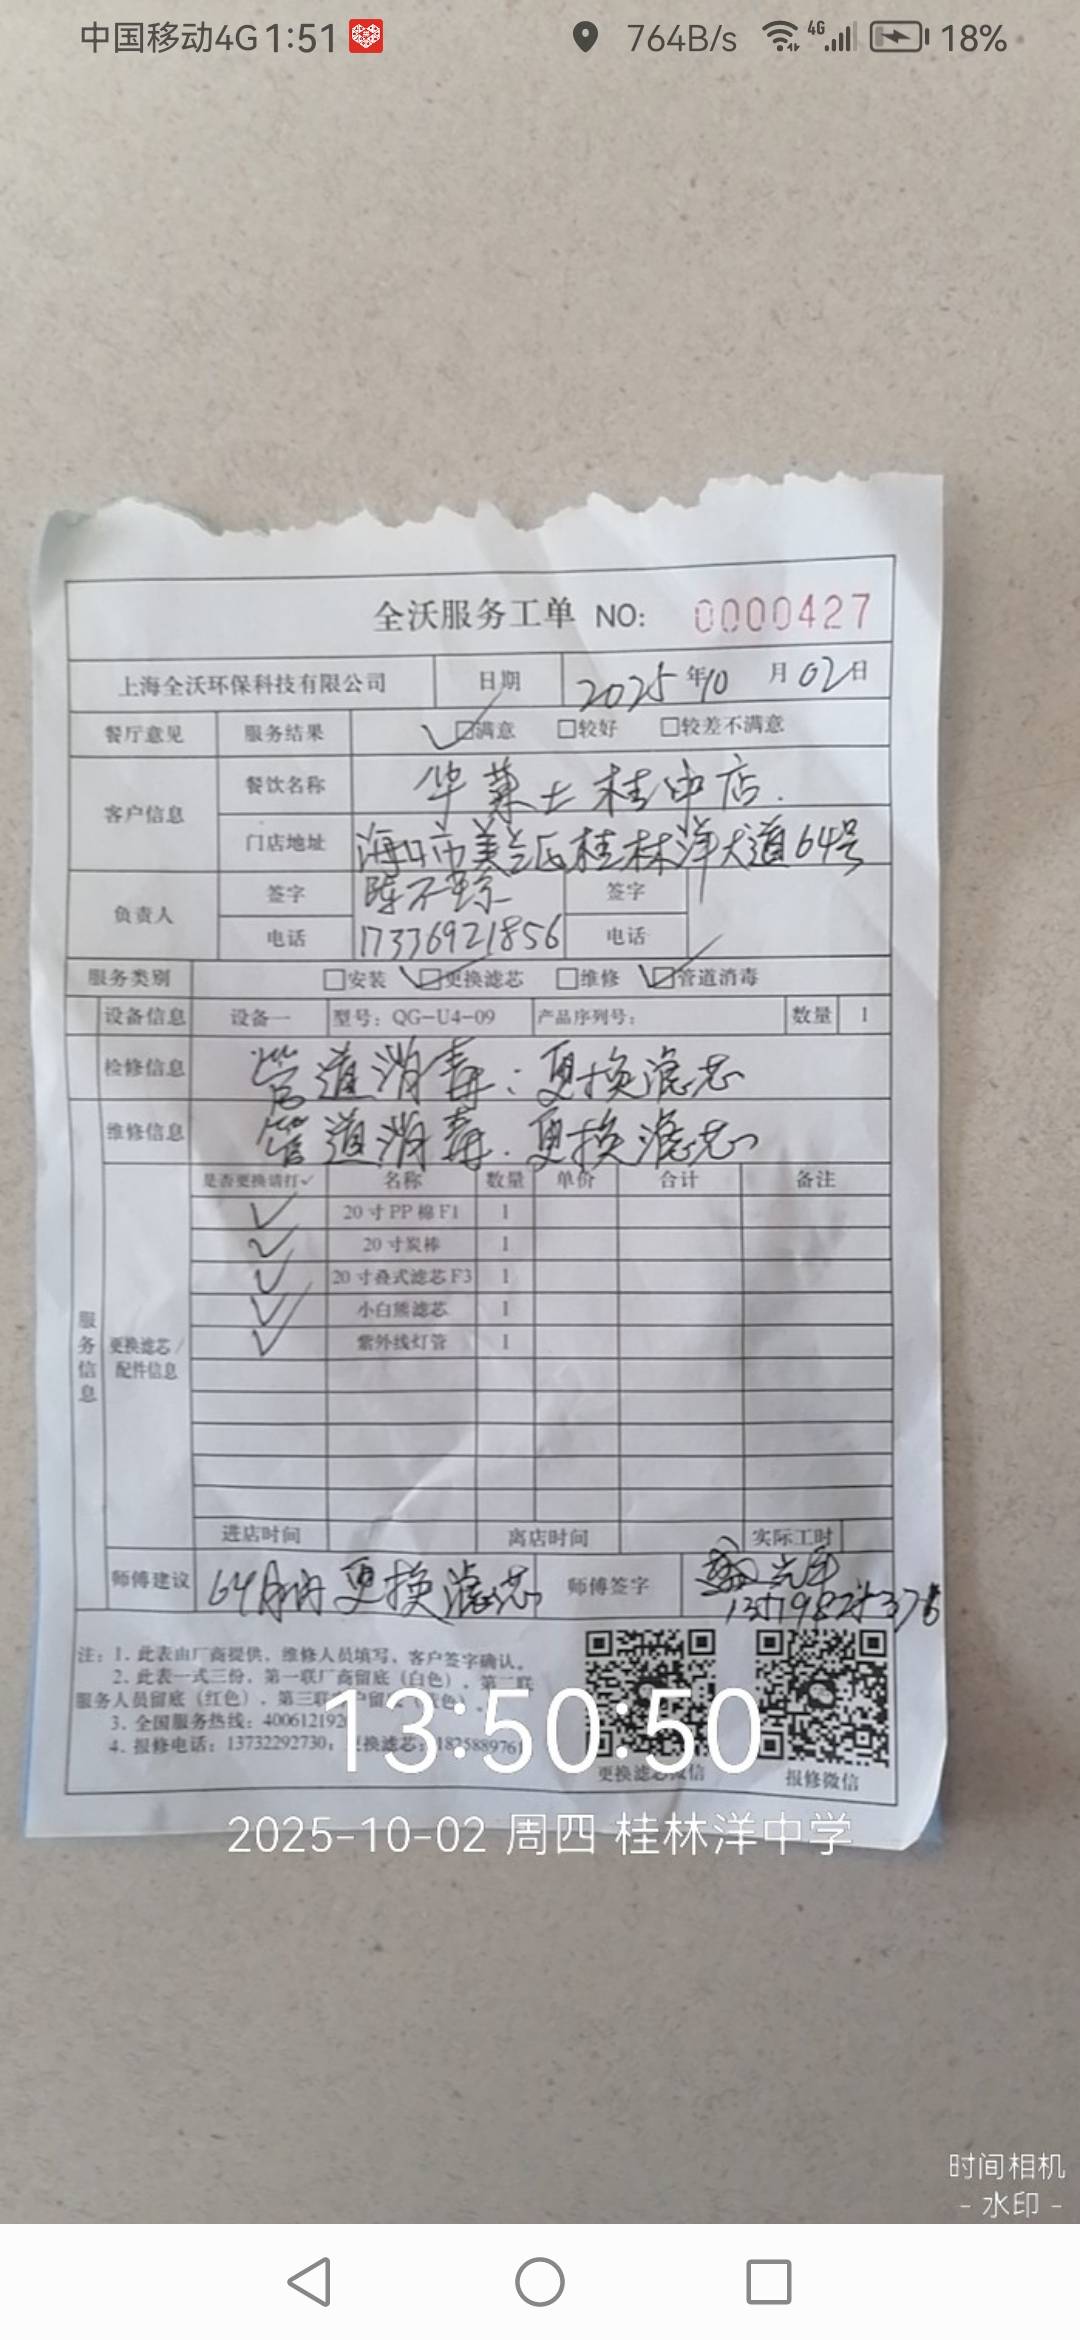 中国移动4G 1:51 764B/s 4G 18%
全沃服务工单 NO: 0000427
上海全沃环保科技有限公司 日期 2025年10月02日
餐厅意见 服务结果 ☑满意 □较好 □较差不满意
客户信息 餐饮名称 华莱士桂中店.
门店地址 海口市美兰区桂林洋大道64号
负责人 签字 陈 签字
电话 17336921856 电话
服务类别 □安装 ☑更换滤芯 □维修 ☑管道消毒
设备信息 设备一 型号: QG-U4-09 产品序列号: 数量 1
检修信息 管道消毒:更换滤芯
维修信息 管道消毒.更换滤芯
服务信息 更换滤芯/配件信息
是否更换请打✓ 名称 数量 单价 合计 备注
✓ 20寸PP棉F1 1
✓ 20寸炭棒 1
✓ 20寸叠式滤芯F3 1
✓ 小白熊滤芯 1
✓ 紫外线灯管 1
进店时间 离店时间 实际工时
师傅建议 更换滤芯 师傅签字
注: 1. 此表由厂商提供、维修人员填写、客户签字确认。
2. 此表一式三份、第一联厂商留底(白色)、第二联
服务人员留底(红色)、第三联客户留
3. 全国服务热线: 400612192
4. 报修电话: 13732292730, 更换滤芯: 1825889761
更换滤芯微信 报修微信
13:50:50
2025-10-02 周四 桂林洋中学
时间相机
- 水印 -